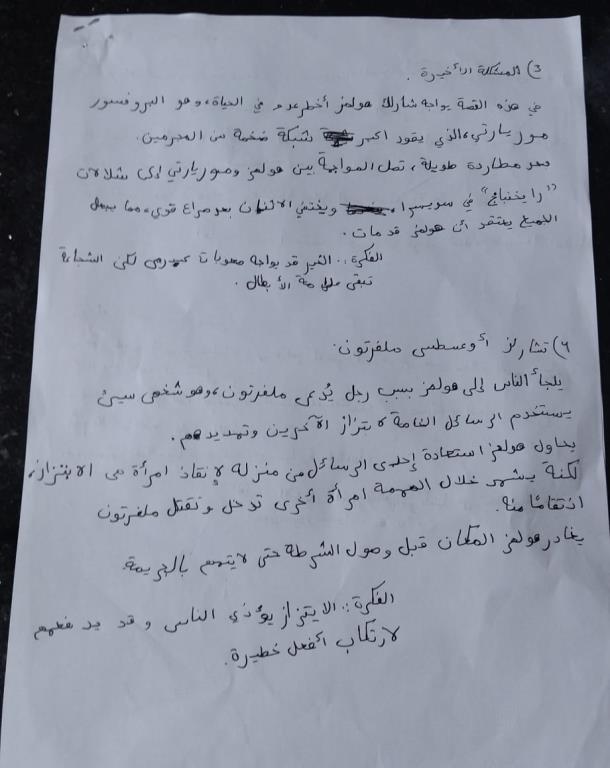 3) المشكلة الأخيرة .
في هذه القصة يواجه شارلك هولمز أخطر عدو في الحياة، وهو البروفسور
موريارتي، الذي يقود اكبر شبكة ضخمة من المجرمين.
بعد مطاردة طويلة، تصل المواجهة بين هولمز وموريارتي إلى شلالات
"رايخنباخ" في سويسرا، ويختفي الاثنان بعد صراع قوي، مما يجعل
الجميع يعتقد أن هولمز قد مات.
الفكرة:. الخير قد يواجه صعوبات لكن الشجاعة
تبقى صفة الأبطال .
٦) تشارلز أوغسطس ملفرتون.
يلجأ الناس إلى هولمز بسبب رجل يُدعى ملفرتون، وهو شخص سيئ
يستخدم الرسائل الخاصة لابتزاز الآخرين وتهديدهم.
يحاول هولمز استعادة إحدى الرسائل من منزله لإنقاذ امرأة من الابتزاز،
لكنة يشهر خلال المهمة امرأة أخرى تدخل وتقتل ملفرتون
انتقامًا منه.
يغادر هولمز المكان قبل وصول الشرطة حتى لا يتهم بالجريمة.
الفكرة:. الابتزاز يؤذي الناس وقد يدفعهم
لارتكاب أفعل خطيرة.